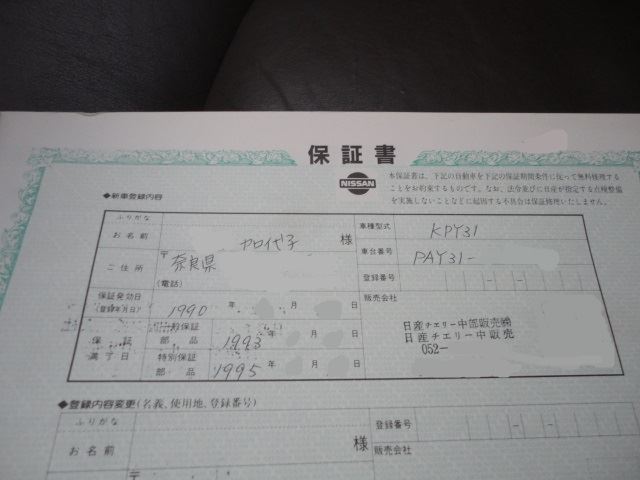 保証書
NISSAN
本保証書は、下記の自動車を下記の保証期間条件に従って無料修理する
ことをお約束するものです。なお、法令並びに日産が指定する点検整備
を実施しないことなどに起因する不具合は保証修理いたしません。
◆新車登録内容
ふりがな
お名前
代子
様
車種型式
KPY31
ご住所
〒
奈良県
(電話)
車台番号
PAY31-
登録番号
保証発効日
(登録年月日)
1990 年 月 日
販売会社
日産チエリー中部販売㈱
日産チエリー中販売
052-
保証
満了日
一般保証
部品
1993 年 月 日
特別保証
部品
1995 年 月 日
◆登録内容変更(名義、使用地、登録番号)
ふりがな
お名前
様
登録番号
販売会社
〒